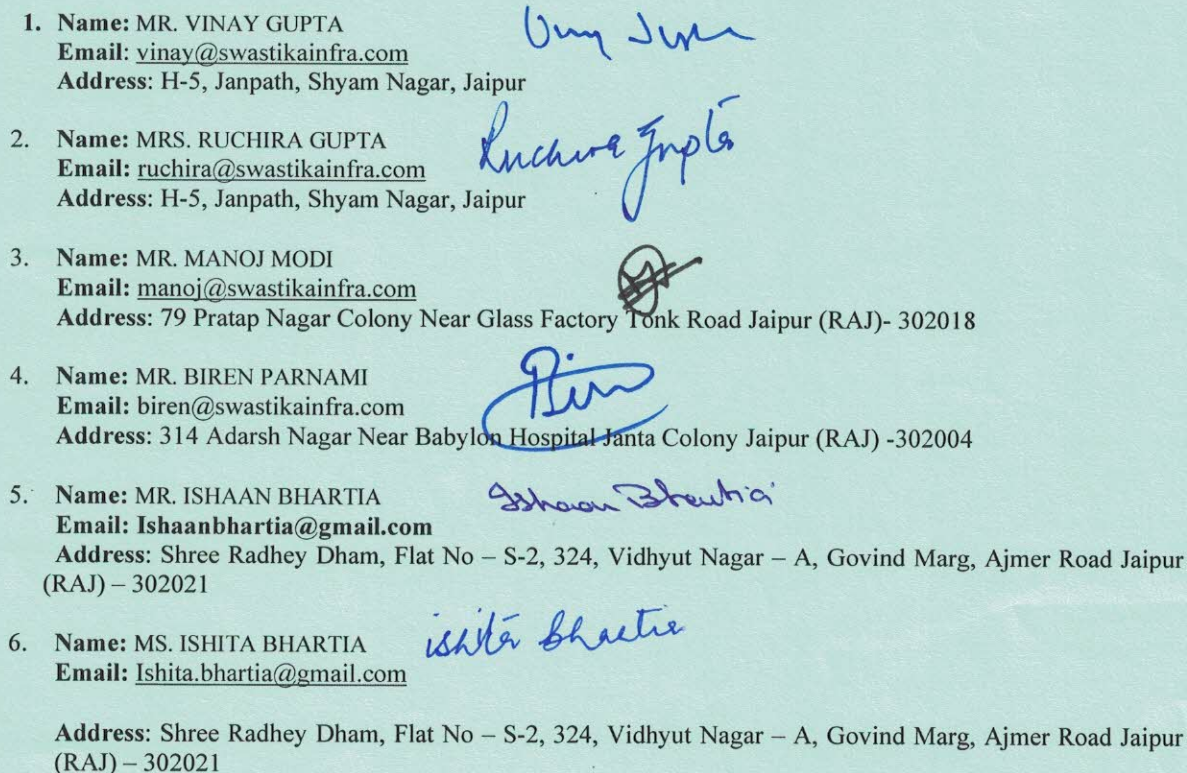 1. Name: MR. VINAY GUPTA
Email: vinay@swastikainfra.com
Address: H-5, Janpath, Shyam Nagar, Jaipur
2. Name: MRS. RUCHIRA GUPTA
Ruchira Gupta
Email: ruchira@swastikainfra.com
Address: H-5, Janpath, Shyam Nagar, Jaipur
3. Name: MR. MANOJ MODI
Email: manoj@swastikainfra.com
Address: 79 Pratap Nagar Colony Near Glass Factory Tonk Road Jaipur (RAJ)- 302018
4. Name: MR. BIREN PARNAMI
Biren
Email: biren@swastikainfra.com
Address: 314 Adarsh Nagar Near Babylon Hospital Janta Colony Jaipur (RAJ) -302004
5. Name: MR. ISHAAN BHARTIA
Ishaan Bhartia
Email: Ishaanbhartia@gmail.com
Address: Shree Radhey Dham, Flat No – S-2, 324, Vidhyut Nagar – A, Govind Marg, Ajmer Road Jaipur
(RAJ) – 302021
6. Name: MS. ISHITA BHARTIA
ishita bhartia
Email: Ishita.bhartia@gmail.com
Address: Shree Radhey Dham, Flat No – S-2, 324, Vidhyut Nagar – A, Govind Marg, Ajmer Road Jaipur
(RAJ) – 302021